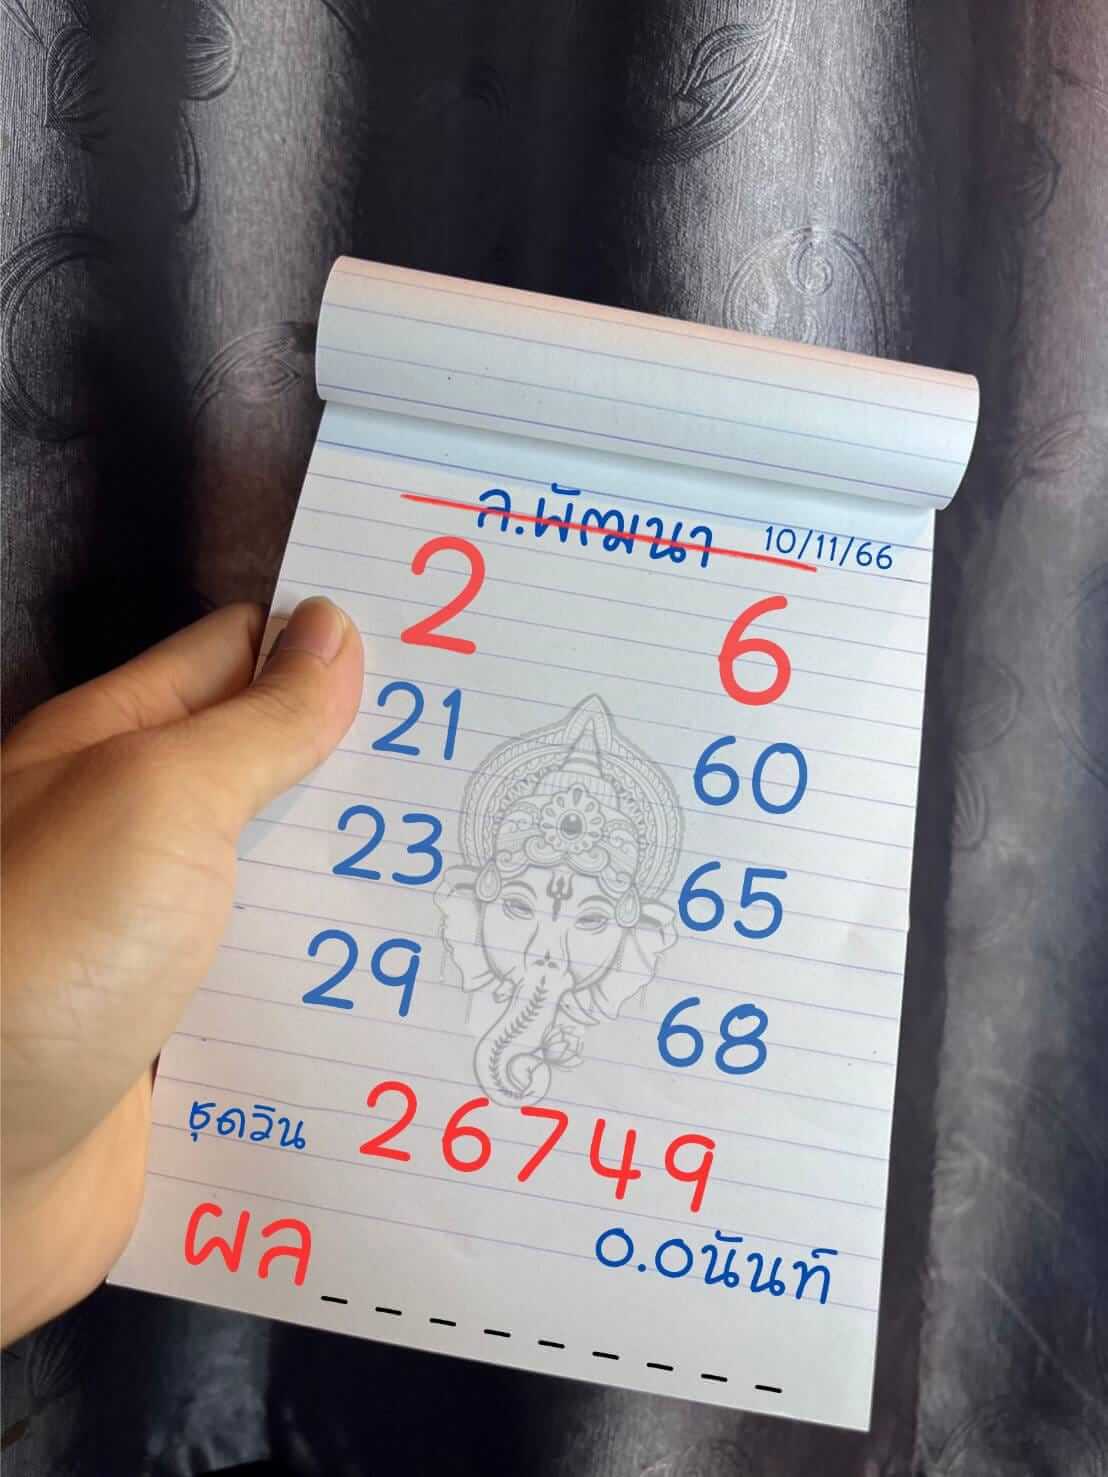 ล.พัฒนา 10/11/66
2 6
21 60
23 65
29 68
ชุดวิน 26749
ผล_ _ _ _ _ _ _ _ _
อ.อนันท์